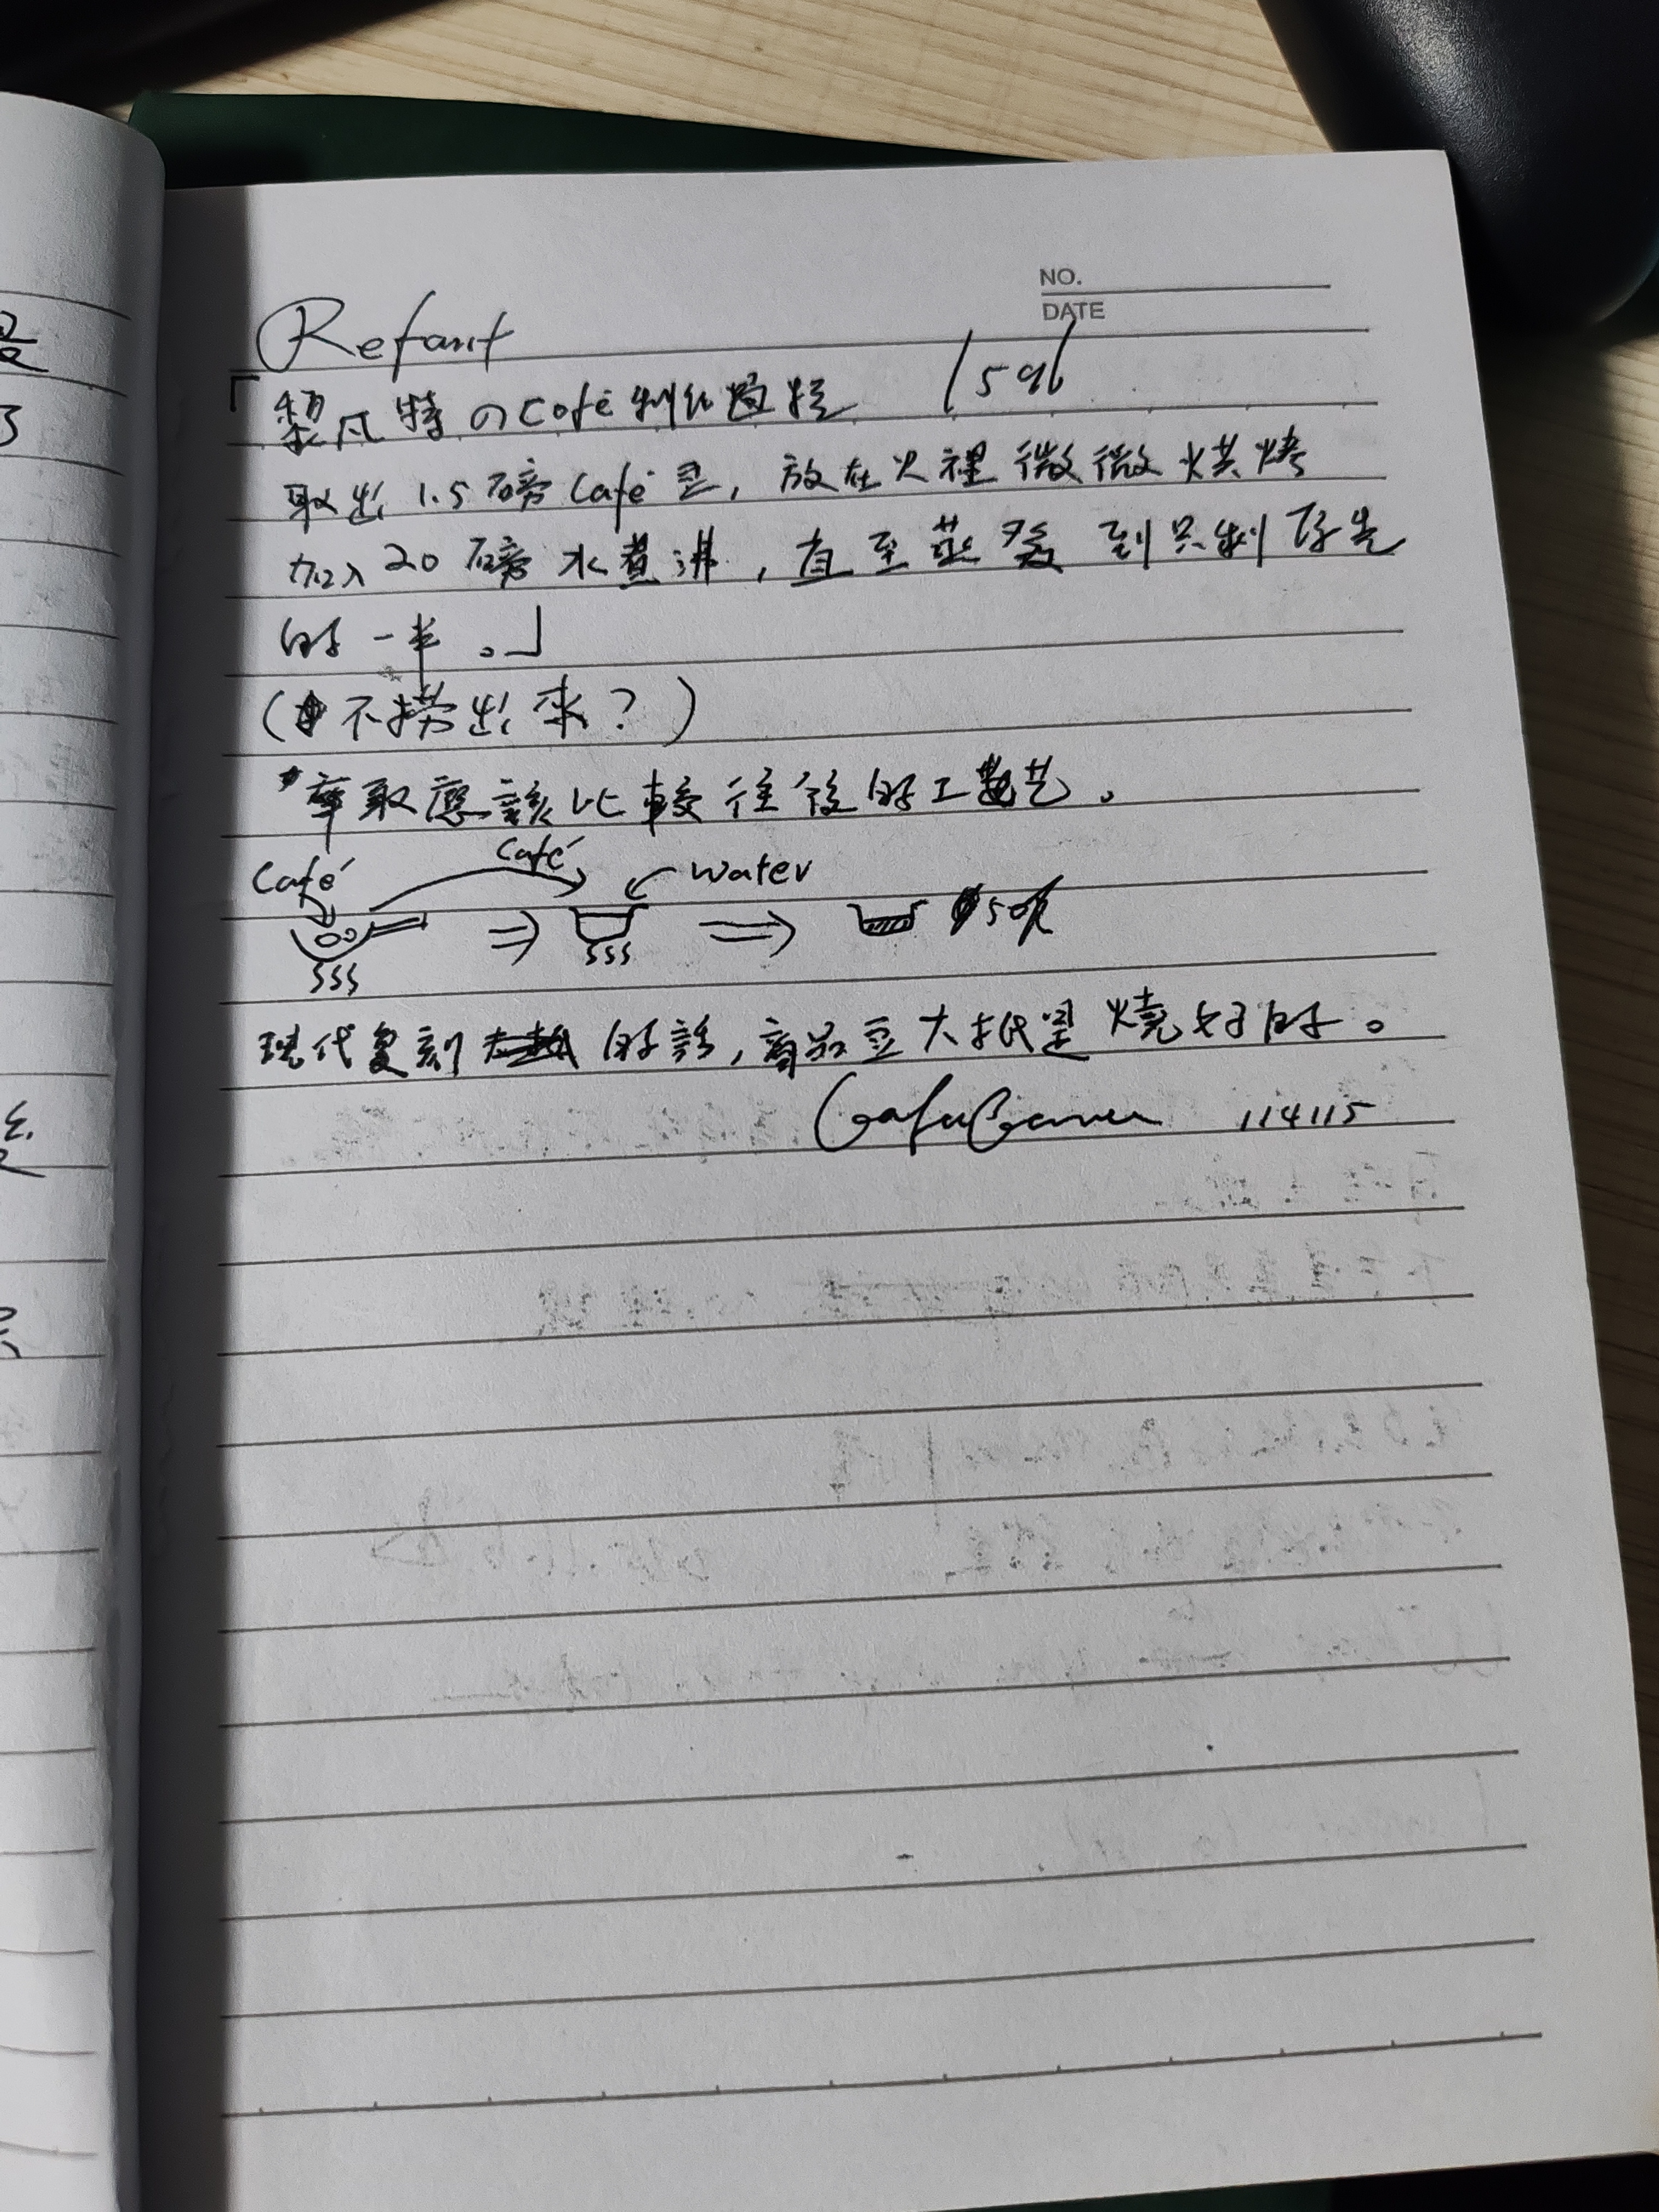 NO.
DATE
Refant
「黎凡特のCafé制作過程 1596
取出 1.5 磅 Café 豆, 放在火裡微微烘烤
加入 20 磅水煮沸, 直至蒸發到只剩原先
的一半。」
(不撈出來?)
萃取應該比較往後的工藝。
Café Café Water
現代复刻 的話, 商品豆大抵是燒好的。
114115